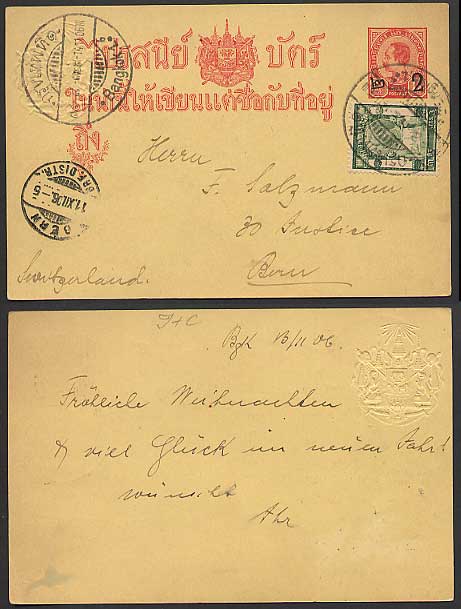 ไปรสนีย์ บัตร์
ในด้านนี้ให้เขียนแต่ชื่อกับที่อยู่
ถึง
2
Bangkok
BERN
BRF. DISTR.
11.XII.06.-6
Herrn
F. Salzmann
30 Justice
Bern
Switzerland.
J+C
Bgk 13/11 06.
Fröhliche Weihnachten
& viel Glück im neuen Jahr!
wünscht
Ahr